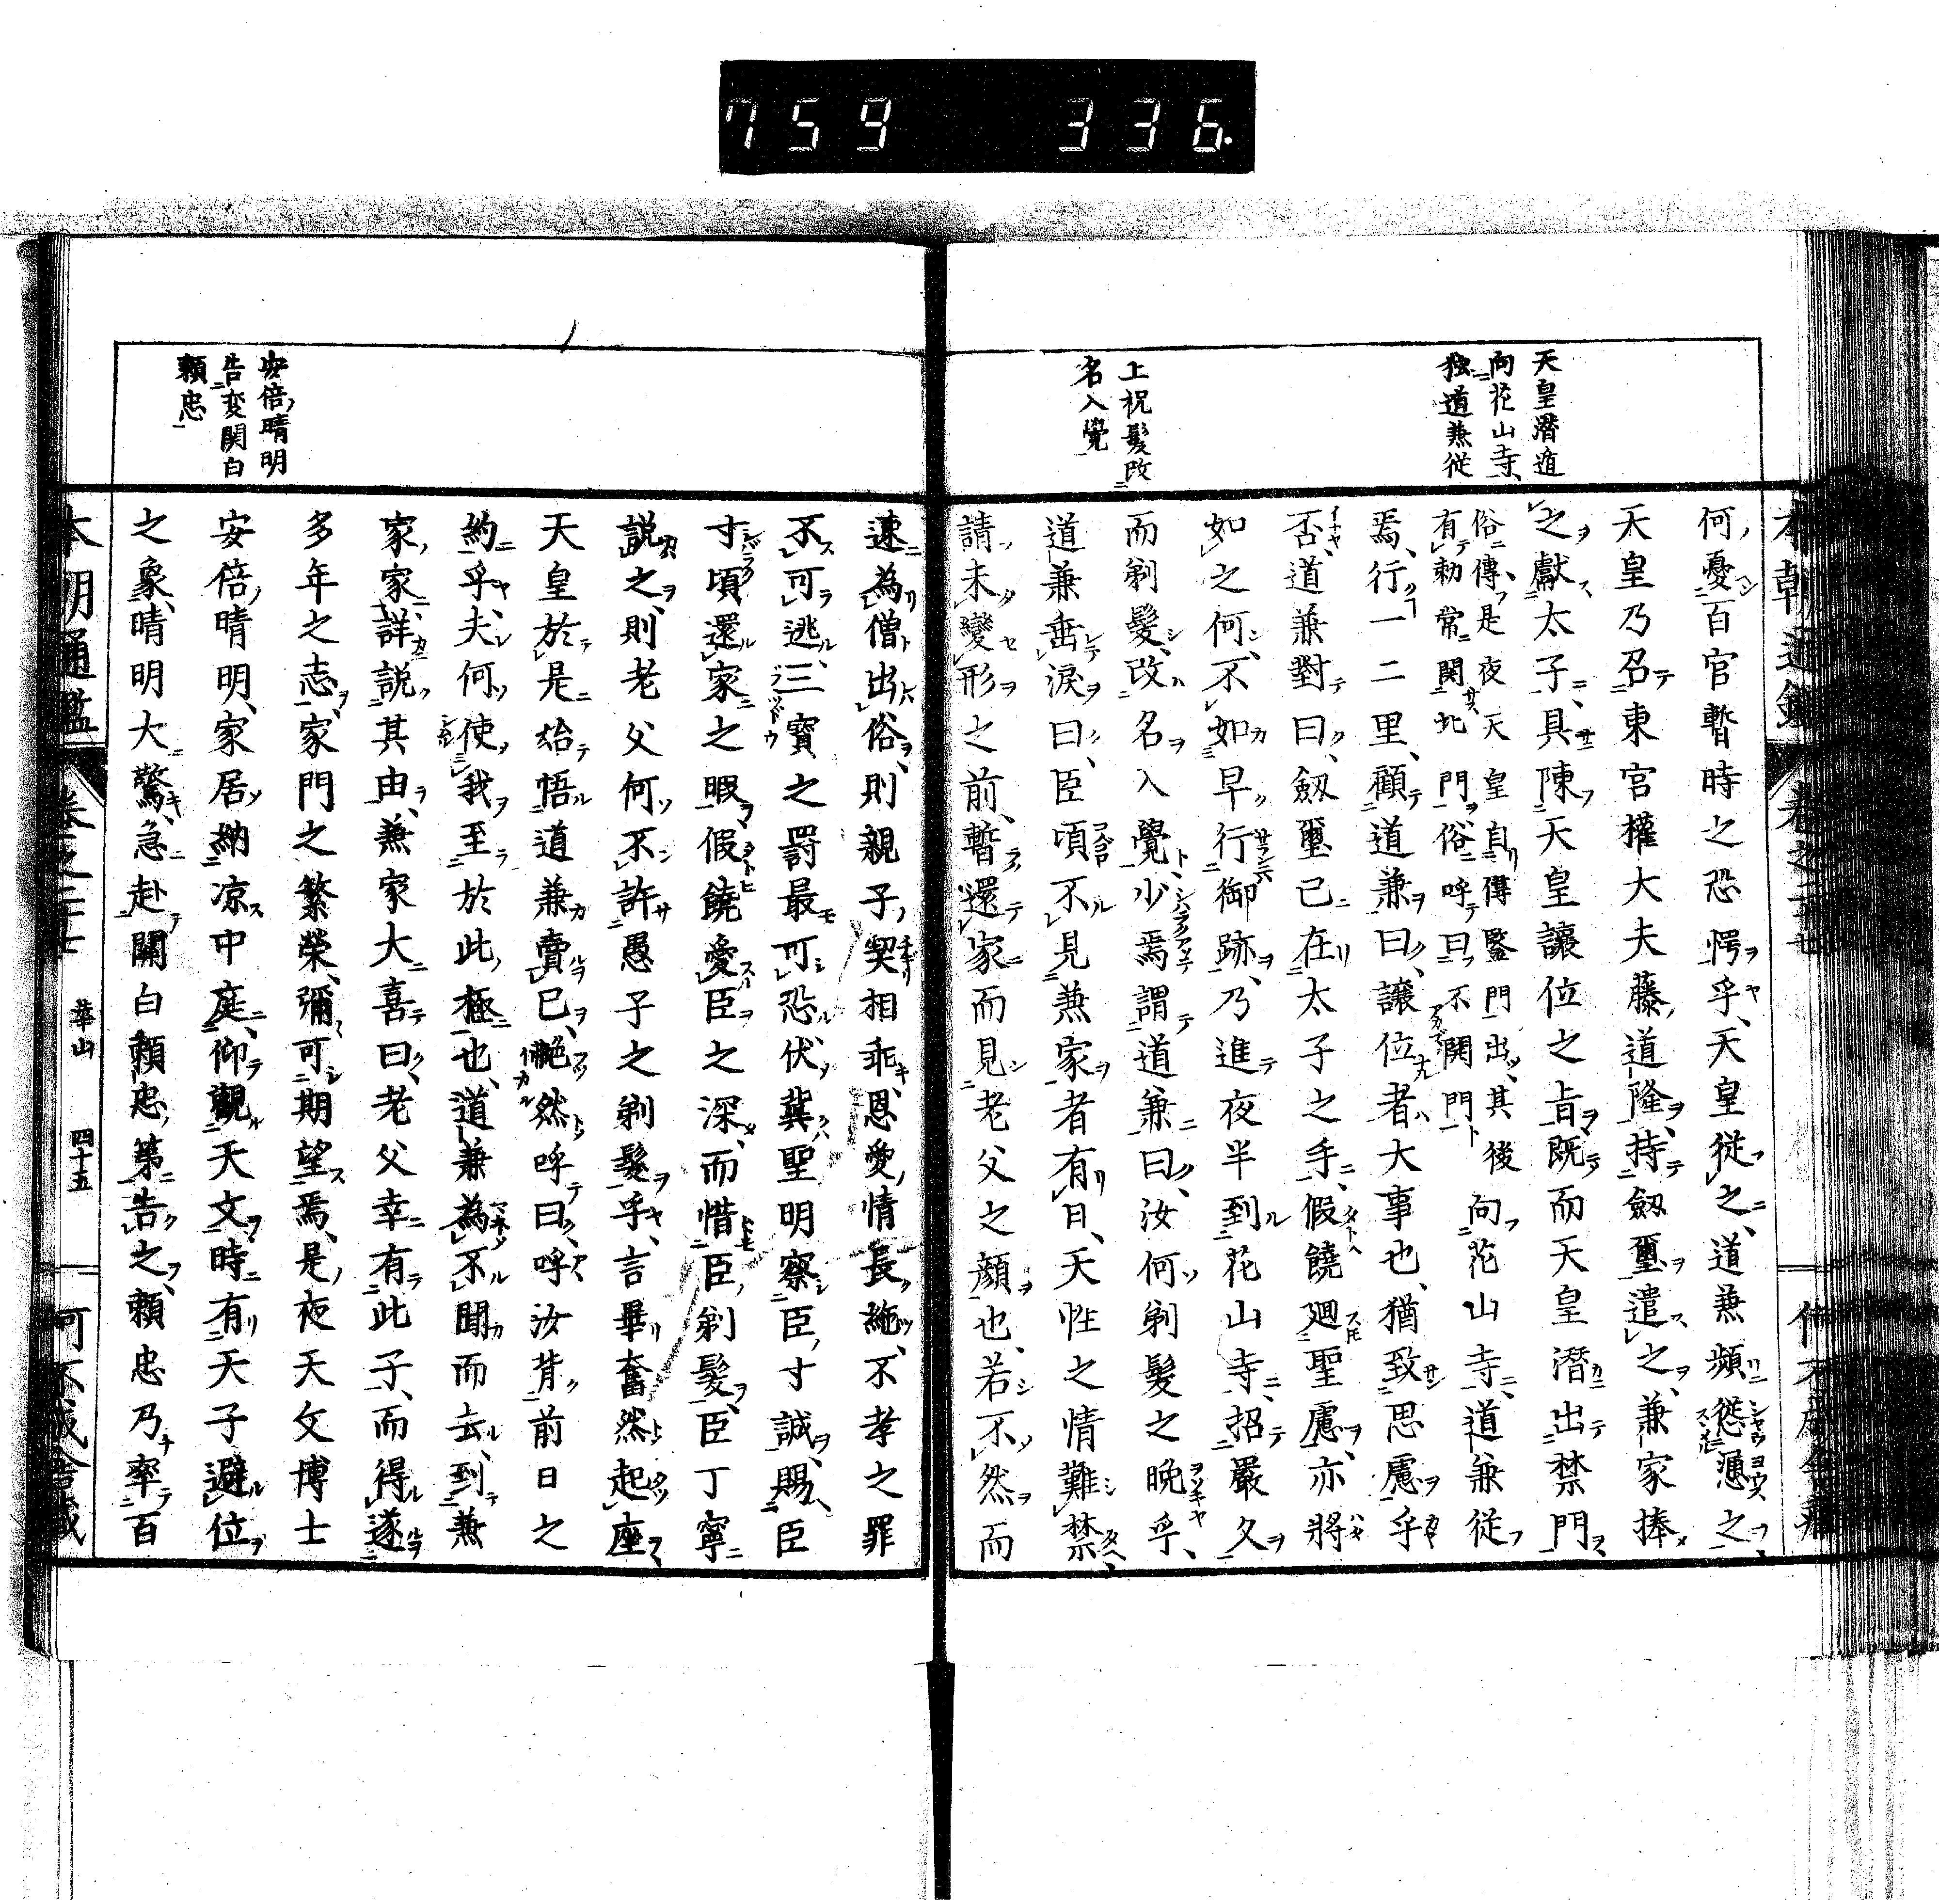 759 336.
天皇潜適
向花山寺、
独道兼従
上祝髪改
名入覺
何憂百官暫時之恐愕乎、天皇従之、道兼頻慫慂之、
天皇乃召東宮權大夫藤道隆、持劔璽遣之、兼家捧
之獻太子、具陳天皇讓位之旨、既而天皇潜出禁門、
俗傳、是夜天皇自偉鑒門出、其後
有勅常関北門、俗呼曰不開門、
向花山寺、道兼従
焉、行一二里、顧道兼曰、讓位者大事也、猶致思慮乎
否、道兼對曰、劔璽已在太子之手、假饒廻聖慮、亦將
如之何、不如早行御跡、乃進夜半到花山寺、招嚴久
而剃髮、改名入覺、少焉謂道兼曰、汝何剃髮之晩乎、
道兼垂涙曰、臣頃不見兼家者有日、天性之情難禁、
請未變形之前、暫還家而見老父之顔也、若不然而
速為僧出俗、則親子契相乖、恩愛情長絶、不孝之罪
不可逃、三寳之罸最可恐、伏冀聖明察臣寸誠、賜臣
寸頃還家之暇、假饒愛臣之深、而惜臣剃髮、臣丁寧
説之、則老父何不許愚子之剃髮乎、言畢奮然起座、
天皇於是始悟道兼賣已、艴然呼曰、呼汝背前日之
約乎、夫何使我至於此極也、道兼為不聞而去、到兼
家家、詳説其由、兼家大喜曰、老父幸有此子、而得遂
多年之志、家門之繁榮、彌可期望焉、是夜天文博士
安倍晴明、家居納凉中庭、仰觀天文、時有天子避位
之象、晴明大驚、急赴關白頼忠第告之、頼忠乃率百
安倍晴明
告変関白
頼忠
本朝通鑑
華山
四十五